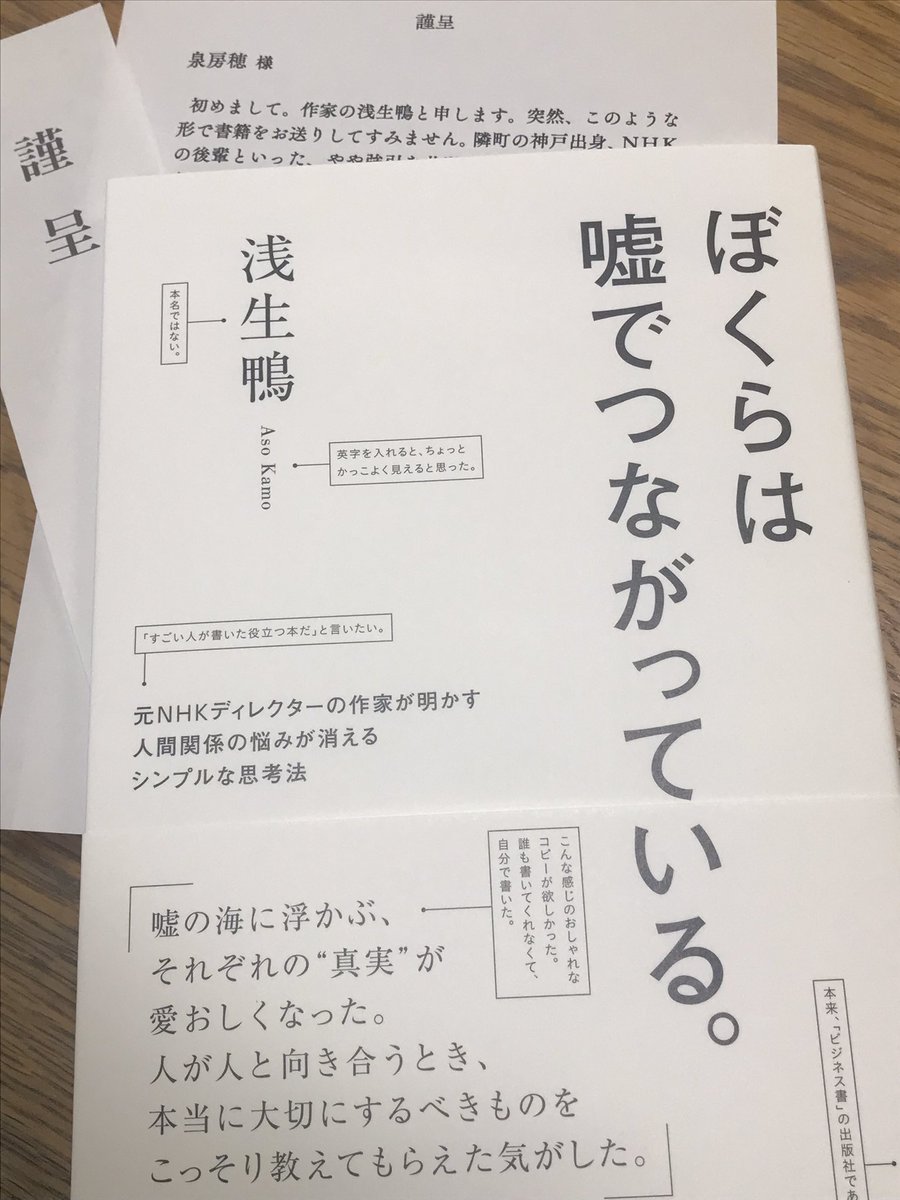 謹呈
泉房穂 様
初めまして。作家の浅生鴨と申します。突然、このような
形で書籍をお送りしてすみません。隣町の神戸出身、NHK
の後輩といった、やや強引な
謹呈
ぼくらは
嘘でつながっている。
浅生鴨
Aso Kamo
本名ではない。
英字を入れると、ちょっと
かっこよく見えると思った。
「すごい人が書いた役立つ本だ」と言いたい。
元NHKディレクターの作家が明かす
人間関係の悩みが消える
シンプルな思考法
こんな感じのおしゃれな
コピーが欲しかった。
誰も書いてくれなくて、
自分で書いた。
嘘の海に浮かぶ、
それぞれの“真実”が
愛おしくなった。
人が人と向き合うとき、
本当に大切にするべきものを
こっそり教えてもらえた気がした。
本来、「ビジネス書」の出版社であ